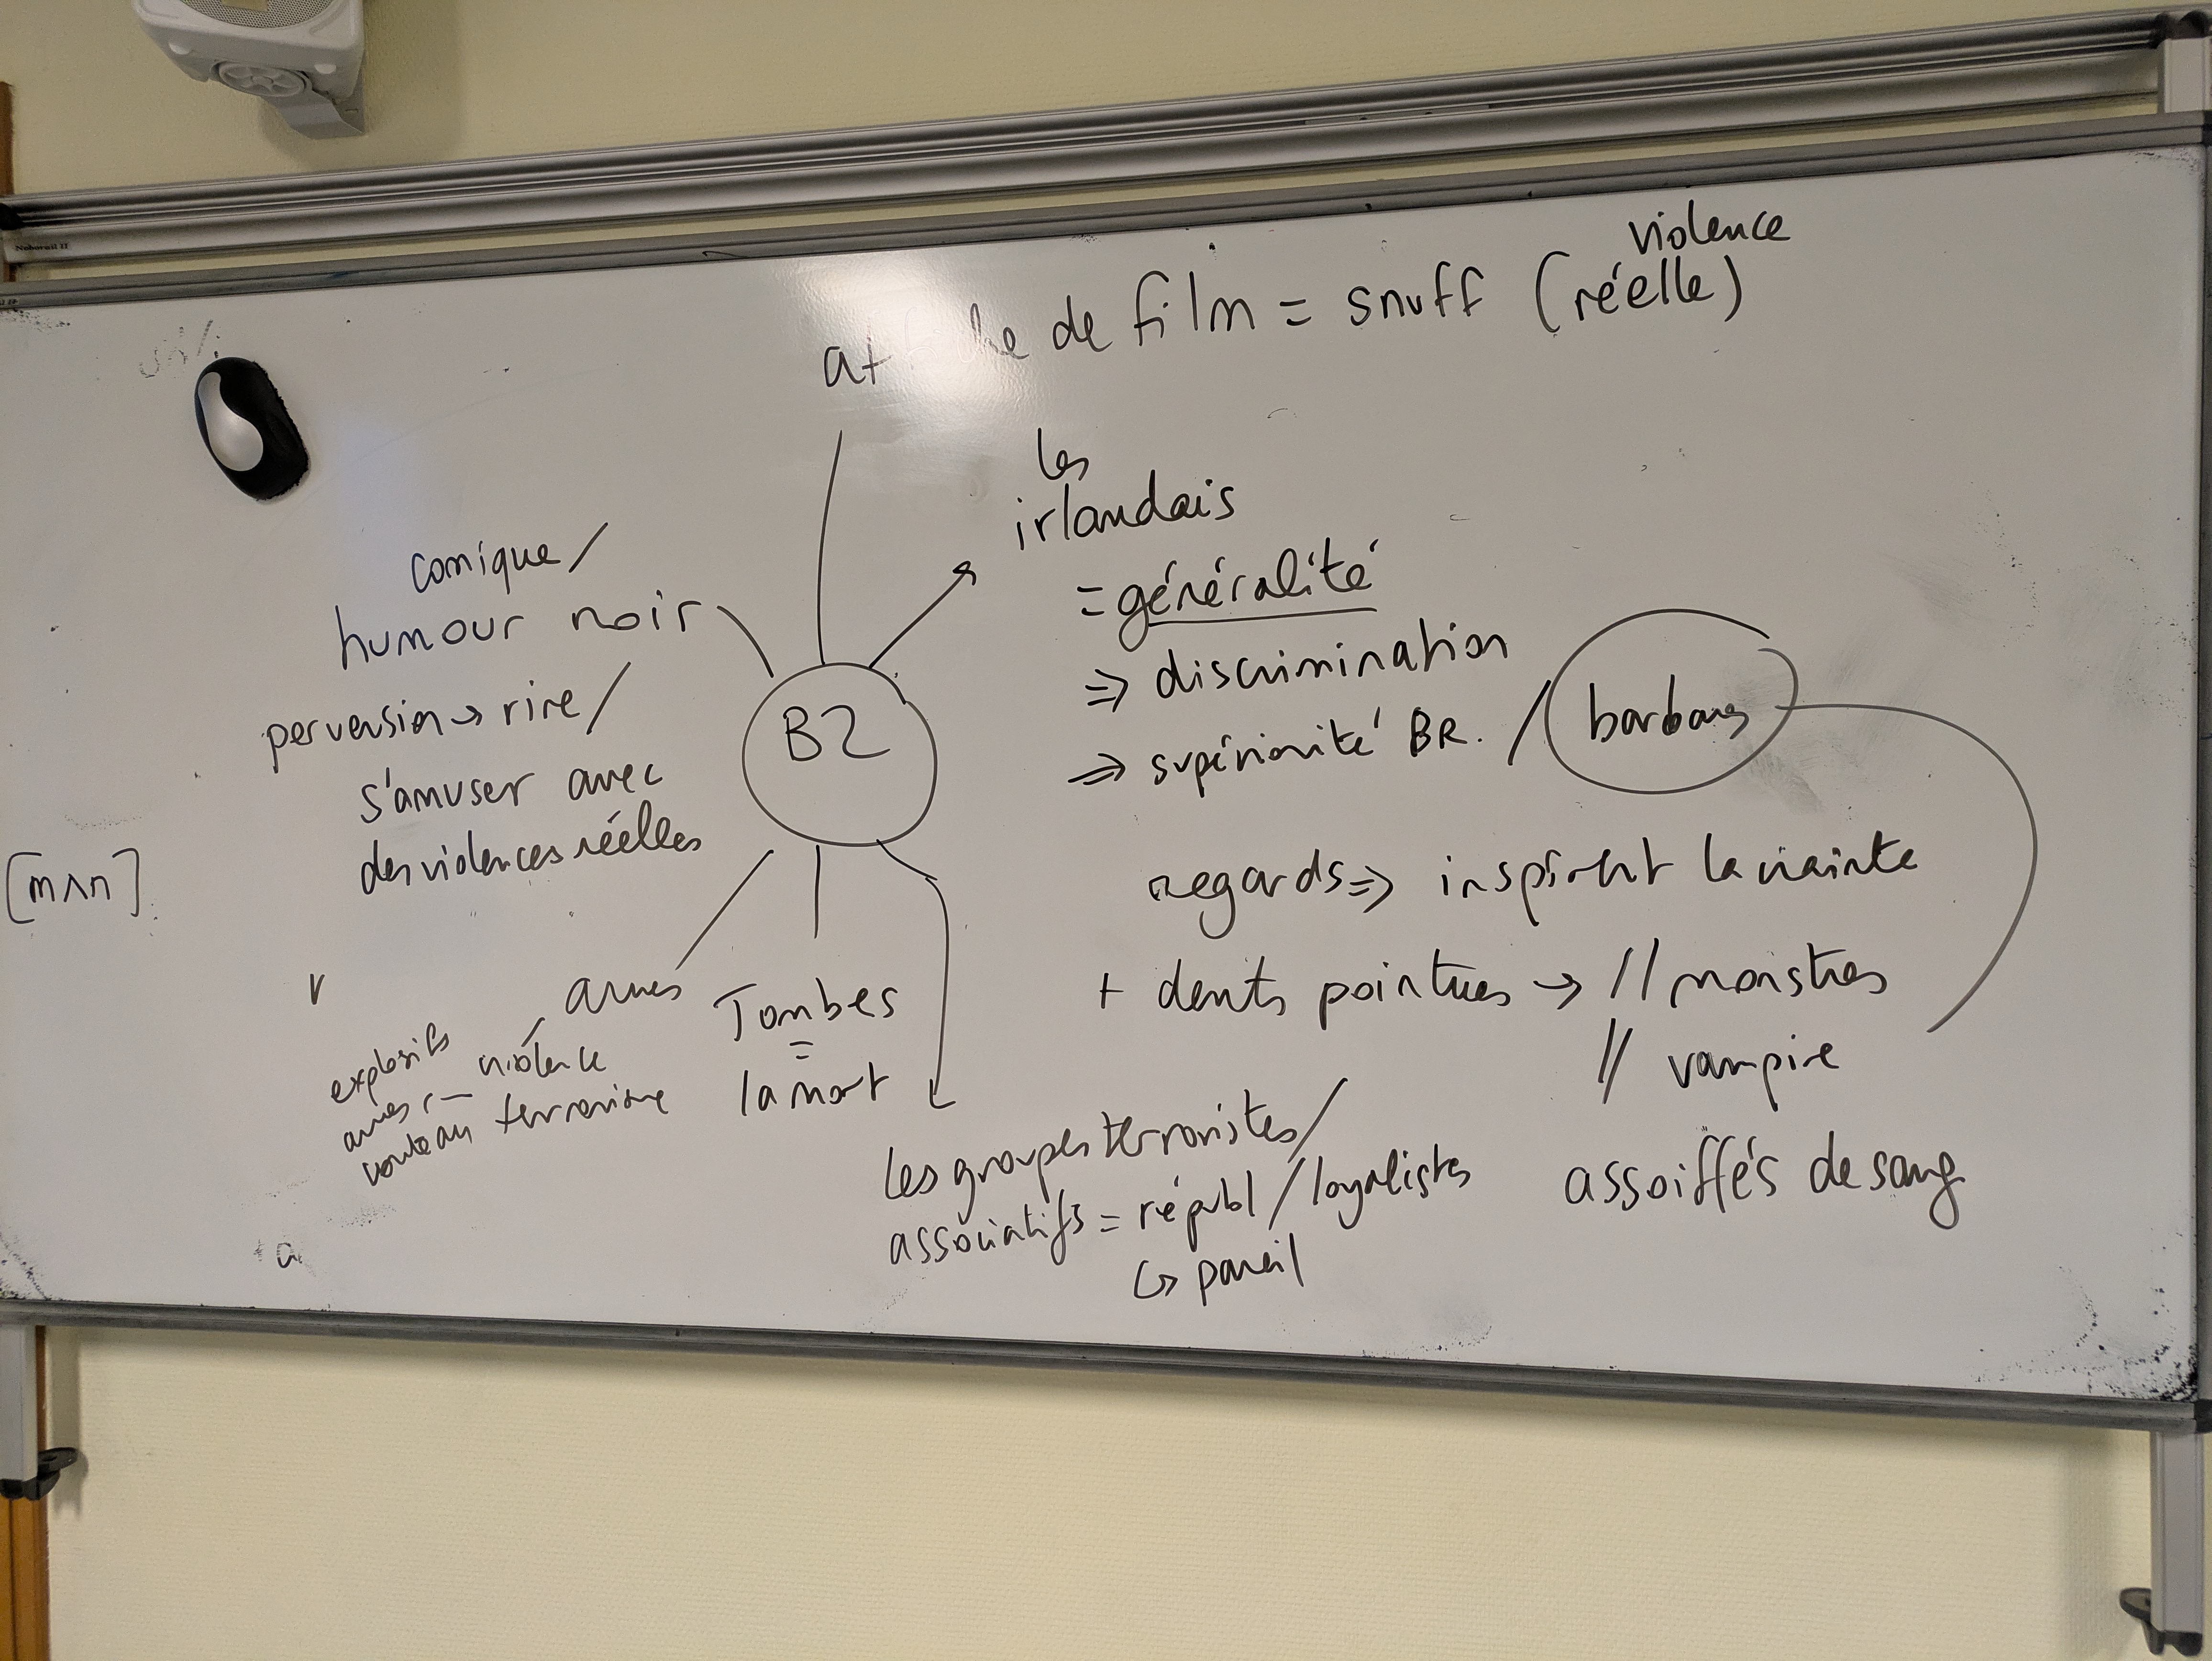 violence
affiche de film = snuff (réelle)
les
irlandais
= généralité
=> discrimination
=> supériorité BR. / barbares
regards => inspirent la crainte
+ dents pointues → // monstres
// vampire
assoiffés de sang
comique /
humour noir
perversion → rire /
s'amuser avec
des violences réelles
B2
[mʌn]
armes
violence
terrorisme
explosifs
armes
couteau
Tombes
=
la mort
les groupes terroristes /
associatifs = républ / loyalistes
↳ pareil